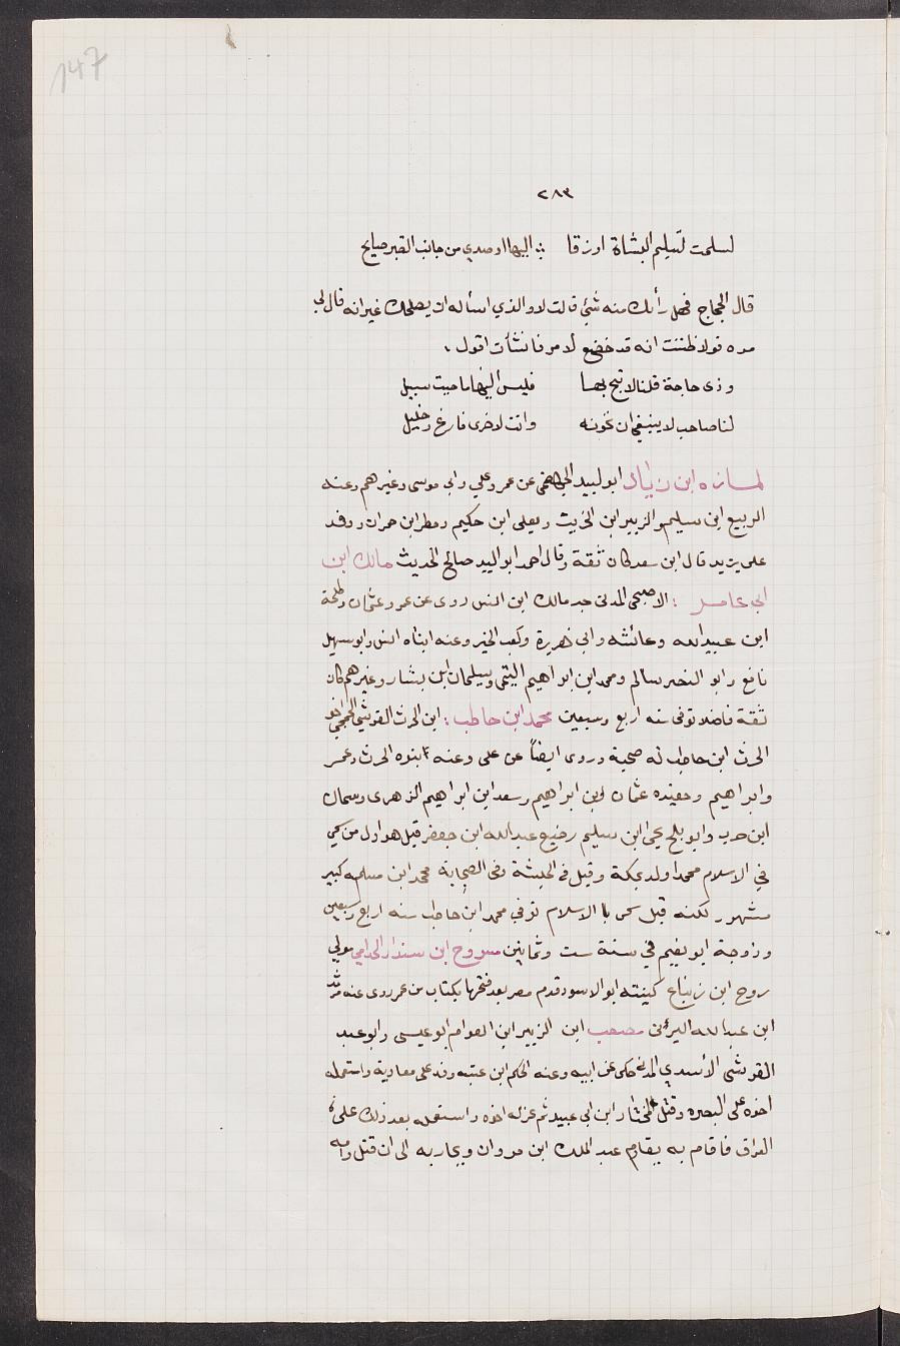 147
٢٨٣
لسلمت تسليم البشاشة اوزقا ؛ اليها اوصدي من جانب القبر صايح
قال الحجاج فهل رأيك منه شئ قالت لا والذي اسأله ان يصلحك غير انه قال لي
مره قولا ظننت انه قد خضع لأمر فانشأت اقول ،
وذي حاجة قلنا لا تبح بهـا فليس اليها ما حييت سبيل
لنا صاحب لا ينبغي ان نخونه وانت لاخرى فارغ وخليل
لمازه ابن زياد ابو لبيد الجهضمي عن عمر وعلي وابي موسى وغيرهم وعنه
الربيع ابن سليم والزبير ابن الخريت ويعلى ابن حكيم ومطر ابن حمران ووفد
على يزيد قال ابن سعد كان ثقة وقال احمد ابو لبيد صالح الحديث مالك ابن
ابي عامر : الاصبحى المدنى جد مالك ابن انس روى عن عمر وعثمان وطلحة
ابن عبيدالله وعائشه وابي هريرة وكعب الخير وعنه ابناه انس وابو سهيل
نافع وابو النضر سالم ومحمد ابن ابراهيم التيمى وسليمان ابن يشار وغيرهم كان
ثقة فاضلا توفى سنه اربع وسبعين محمد ابن حاطب : ابن الحرث القرشي الجمحي اخو
الحرث ابن حاطب له صحبة وروى ايضاً عن على وعنه ابنوه الحرث وعمر
وابراهيم وحفيده عثمان ابن ابراهيم وسعد ابن ابراهيم الزهرى وسماك
ابن حرب وابو بلج يحيى ابن سليم رضيع عبدالله ابن جعفر قيل هو اول من سمي
في الاسلام محمدا ولد بمكة وقيل في الحبشة وفى الصحابة محمد ابن مسلمه كبير
مشهور لكنه قبل سمى با الاسلام توفي محمد ابن حاطب سنه اربع وسبعين
وزوجة ابو نعيم في سنة ست وثمانين مسروح ابن سندار الجذامي مولى
روح ابن زنباع كينته ابو الاسود قدم مصر بعد فتحها بكتاب من عمر روى عنه مرثد
ابن عبدالله اليزنى مصعب ابن الزبير ابن العوام ابو عيسى وابو عبد
القرشى الأسدي المدني حكى عن ابيه وعنه الحكم ابن عتبه وفد على معاوية واستعمله
اخوه على البصره وقتل المختار ابن ابي عبيد ثم عزله اخوه واستعمله بعد ذلك على
العراق فاقام به يقاوم عبد الملك ابن مروان ويحاربه الى ان قتل وامه